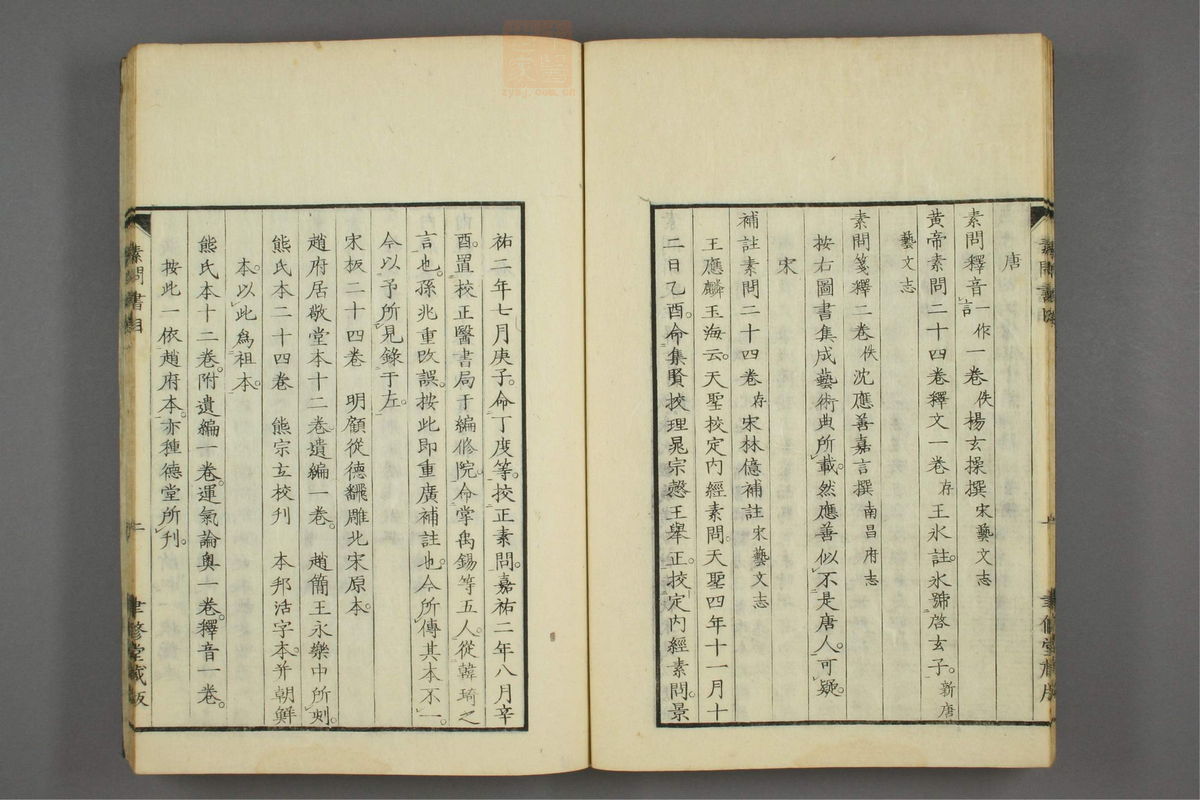 唐
素問釋音言一作一卷佚楊玄操撰宋藝文志
黃帝素問二十四卷釋文一卷存王氷註。氷號啓玄子。新唐
藝文志
素問箋釋二卷佚沈應善嘉言撰南昌府志
按右圖書集成藝術典所載。然應善似不是唐人。可疑。
宋
補註素問二十四卷存宋林億補註宋藝文志
王應麟玉海云。天聖校定内經素問天聖四年十一月十
二日乙酉。命集賢挍理晁宗慤王舉正。挍定内經素問。景
祐二年七月庚子。命丁度等。挍正素問。嘉祐二年八月辛
酉。置校正醫書局于編修院。命掌禹錫等五人。從韓琦之
言也。孫兆重改誤。按此即重廣補註也。今所傳其本不一。
今以予所見錄于左。
宋板二十四卷 明顧從德飜雕北宋原本。
趙府居敬堂本十二卷遺編一卷。 趙簡王永樂中所刻。
熊氏本二十四卷 熊宗立校刋 本邦活字本。并朝鮮
本。以此爲祖本。
熊氏本十二卷。附遺編一卷。運氣論奥一卷。釋音一卷。
按此一依趙府本。亦種德堂所刋。
素問書目
二
聿修堂藏版